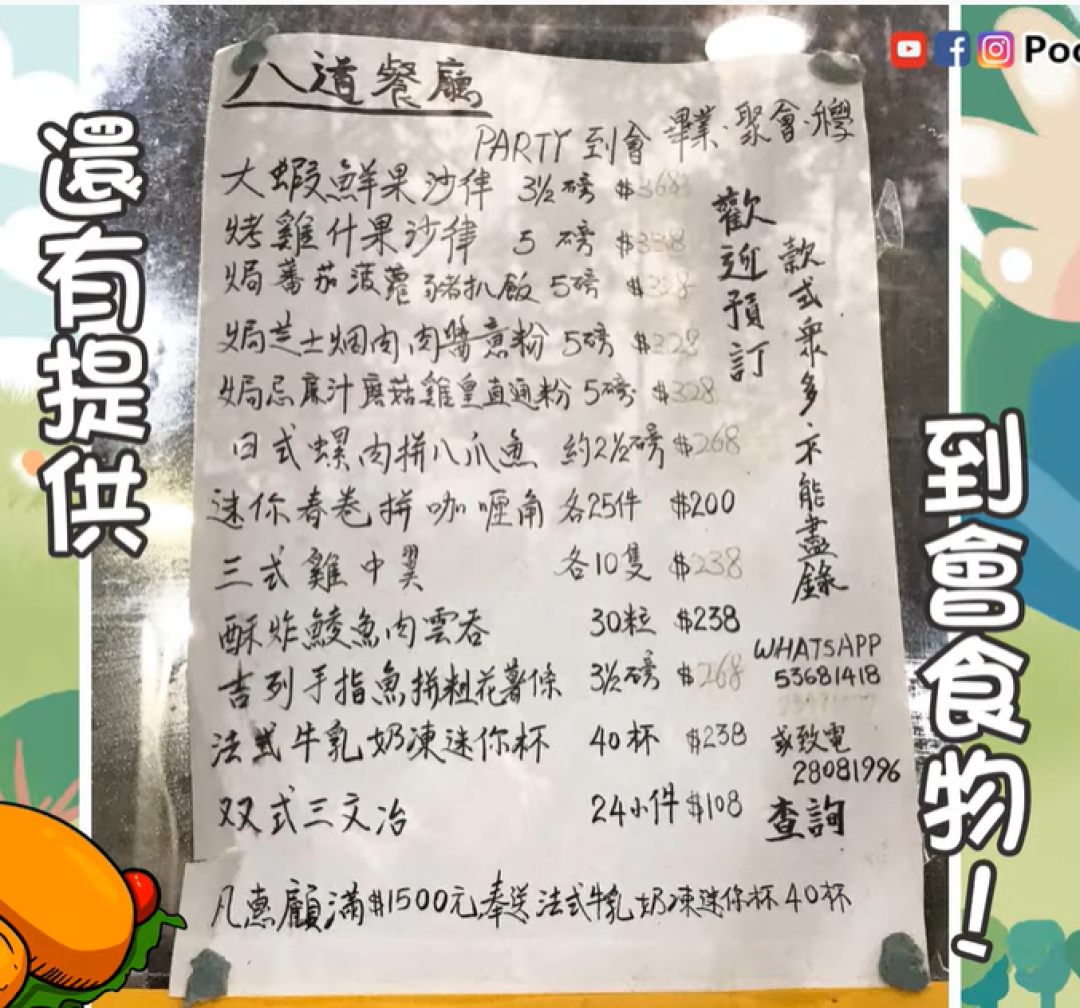 Poo
還有提供
八道餐廳
PARTY 到會 畢業·聚會·開學
大蝦鮮果沙律 3½磅 $368
烤雞什果沙律 5磅 $338
焗蕃茄菠蘿豬扒飯 5磅 $328
焗芝士烟肉肉醬意粉 5磅 $328
焗忌廉汁蘑菇雞皇直通粉 5磅 $328
日式螺肉拼八爪魚 約2½磅 $268
迷你春卷拼咖喱角 各25件 $200
三式雞中翼 各10隻 $238
酥炸鯪魚肉雲吞 30粒 $238
吉列手指魚拼粗花薯條 3½磅 $268
法式牛乳奶凍迷你杯 40杯 $238
双式三文冶 24小件 $108
歡迎預訂
款式衆多不能盡錄
WHATSAPP
53681418
或致電
28081996
查詢
凡惠顧滿$1500元奉送法式牛乳奶凍迷你杯40杯
到會食物！